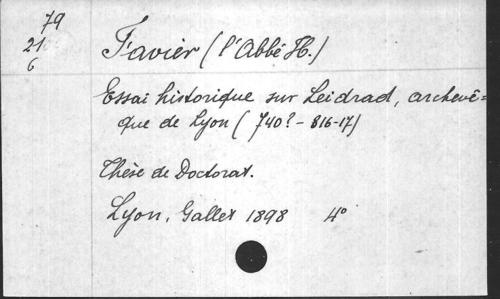 79
21
6
Favier (l'Abbé H.)
Essai historique sur Leidrad, archevê=
que de Lyon (740?-816-17)
Thèse de Doctorat.
Lyon, Gallet 1898 4°